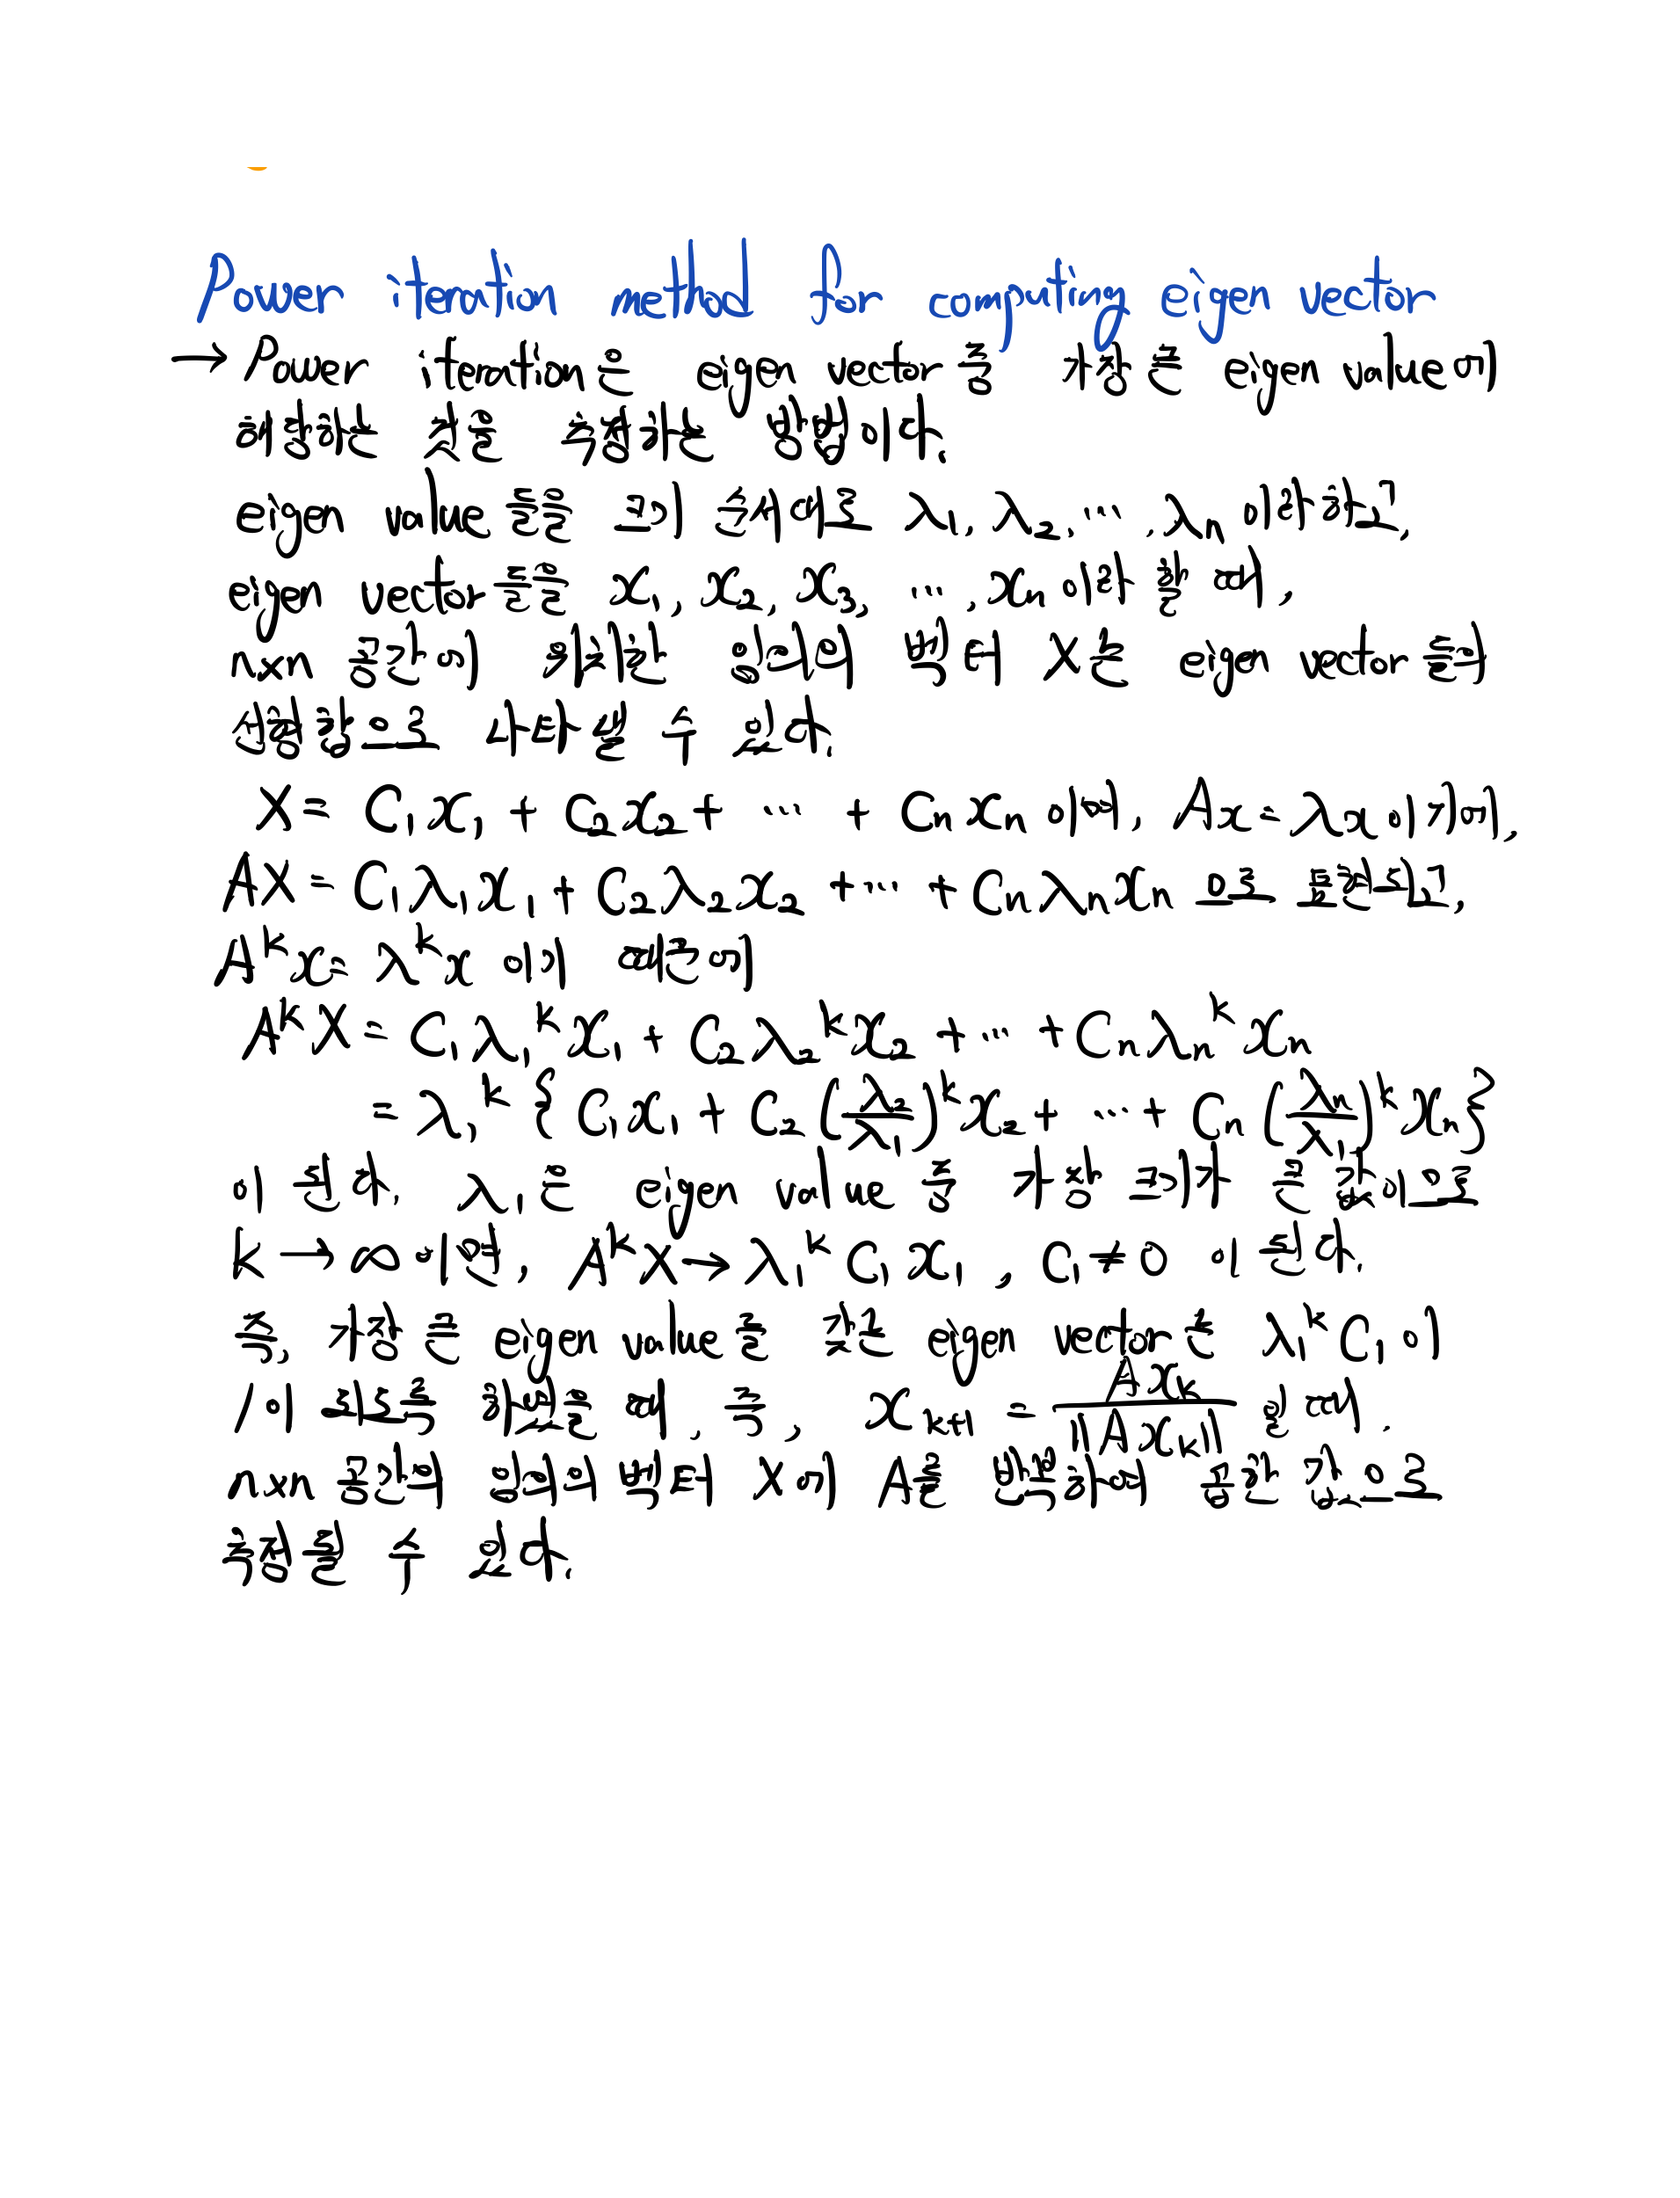 Power iteration method for computing eigen vector
→ Power iteration은 eigen vector 중 가장 큰 eigen value에
해당하는 것을 측정하는 방법이다.
eigen value 들을 크기 순서대로 λ₁, λ₂, ⋯, λₙ 이라 하고,
eigen vector들을 x₁, x₂, x₃, ⋯, xₙ 이라 할 때,
n×n 공간에 위치한 임의의 벡터 X는 eigen vector 들의
선형합으로 나타낼 수 있다.
X = C₁x₁ + C₂x₂ + ⋯ + Cₙxₙ 이며, Ax = λx 이기에,
AX = C₁λ₁x₁ + C₂λ₂x₂ + ⋯ + Cₙλₙxₙ 으로 표현되고,
Aᵏx = λᵏx 이기 때문에
AᵏX = C₁λ₁ᵏx₁ + C₂λ₂ᵏx₂ + ⋯ + Cₙλₙᵏxₙ
= λ₁ᵏ { C₁x₁ + C₂(λ₂/λ₁)ᵏx₂ + ⋯ + Cₙ(λₙ/λ₁)ᵏxₙ}
이 된다. λ₁은 eigen value 중 가장 크기가 큰 값이므로
k → ∞ 이면, AᵏX → λ₁ᵏ C₁x₁, C₁ ≠ 0 이 된다.
즉, 가장 큰 eigen value를 갖는 eigen vector는 λ₁ᵏC₁이
1이 되도록 하였을 때, 즉, xₖ₊₁ = Axₖ/‖Axₖ‖ 일 때,
n×n 공간의 임의의 벡터 X에 A를 반복하여 곱한 값으로
측정될 수 있다.